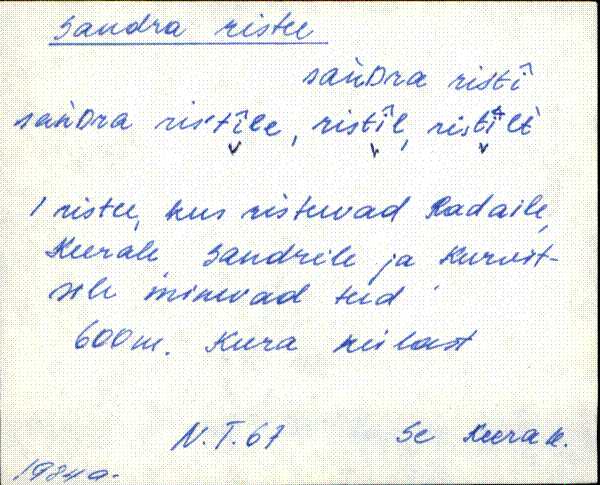 Sandra ristee
sàǹDra ristî
sàǹDra ris'tîle, ristîl, ristilt
/ ristee, kus ristuvad Radaile,
Keerale, Sandrile ja Kurvit-
sile minevad teid
600 m. Kura külast
N.T. 67 Se Keera k.
1984 a.